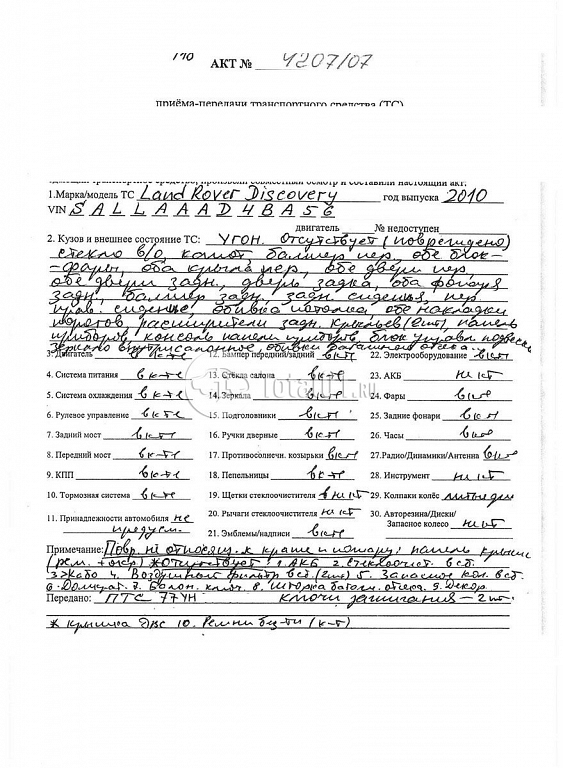 АКТ № 4207/07
приёма-передачи транспортного средства (ТС)
1.Марка/модель ТС Land Rover Discovery год выпуска 2010
VIN S A L L A A A D 4 B A 5 6
двигатель № недоступен
2. Кузов и внешнее состояние ТС: УГОН. Отсутствует (повреждено)
стекло в/о, капот, бампер пер, обе блок-
-фары, оба крыла пер, обе двери пер,
обе двери задн, дверь задка, оба фонаря
задн, бампер задн, задн. сиденья, пер
прав. сиденье, обивка потолка, обе накладки
порогов, расширители задн. крыльев (2шт), панель
приборов, консоль панели приборов, блок управл подвеск
зеркало внутрисалонное, обивки багажной отсека.
3. Двигатель в к-те 12. Бампер передний/задний в к-т 22. Электрооборудование в к-т
4. Система питания в к-те 13. Стекла салона в к-те 23. АКБ не к-т
5. Система охлаждения в к-те 14. Зеркала в к-те 24. Фары в к-те
6. Рулевое управление в к-те 15. Подголовники в к-т 25. Задние фонари в к-т
7. Задний мост в к-те 16. Ручки дверные в к-т 26. Часы в к-те
8. Передний мост в к-те 17. Противосолнечн. козырьки в к-т 27.Радио/Динамики/Антенна в к-те
9. КПП в к-те 18. Пепельницы в к-те 28. Инструмент не к-т
10. Тормозная система в к-те 19. Щетки стеклоочистителя не к-т 29. Колпаки колёс литые диски
11. Принадлежности автомобиля не 20. Рычаги стеклоочистителя не к-т 30. Авторезина/Диски/
предусм. Запасное колесо не к-т
21. Эмблемы/надписи в к-те
Примечание: Повр. не относящ. к краже и пожару: панель крыши
(рем. + окр) ж Отсутствует: 1. АКБ 2. Стеклоочист в сб.
4. Воздушный фильтр в сб (2шт) 5. Запасное кол. в сб.
6. Домкрат. 7. Балон. ключ. 8. Шторка багажн. отсека. 9. Декор.
Передано: ПТС 77УН ключи зажигания – 2шт.
ж крышка ДВС 10. Ремни без-ти (к-т)
TOTAL01.RU